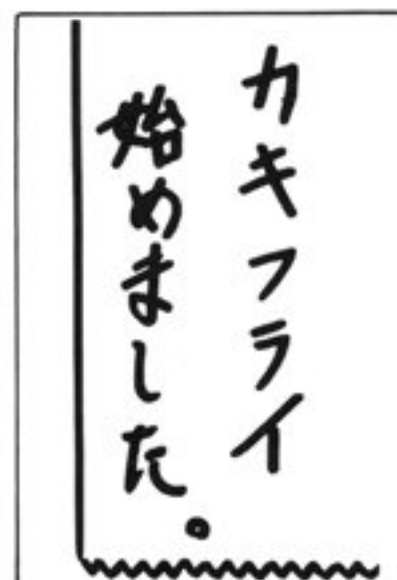 カキフライ
始めました。